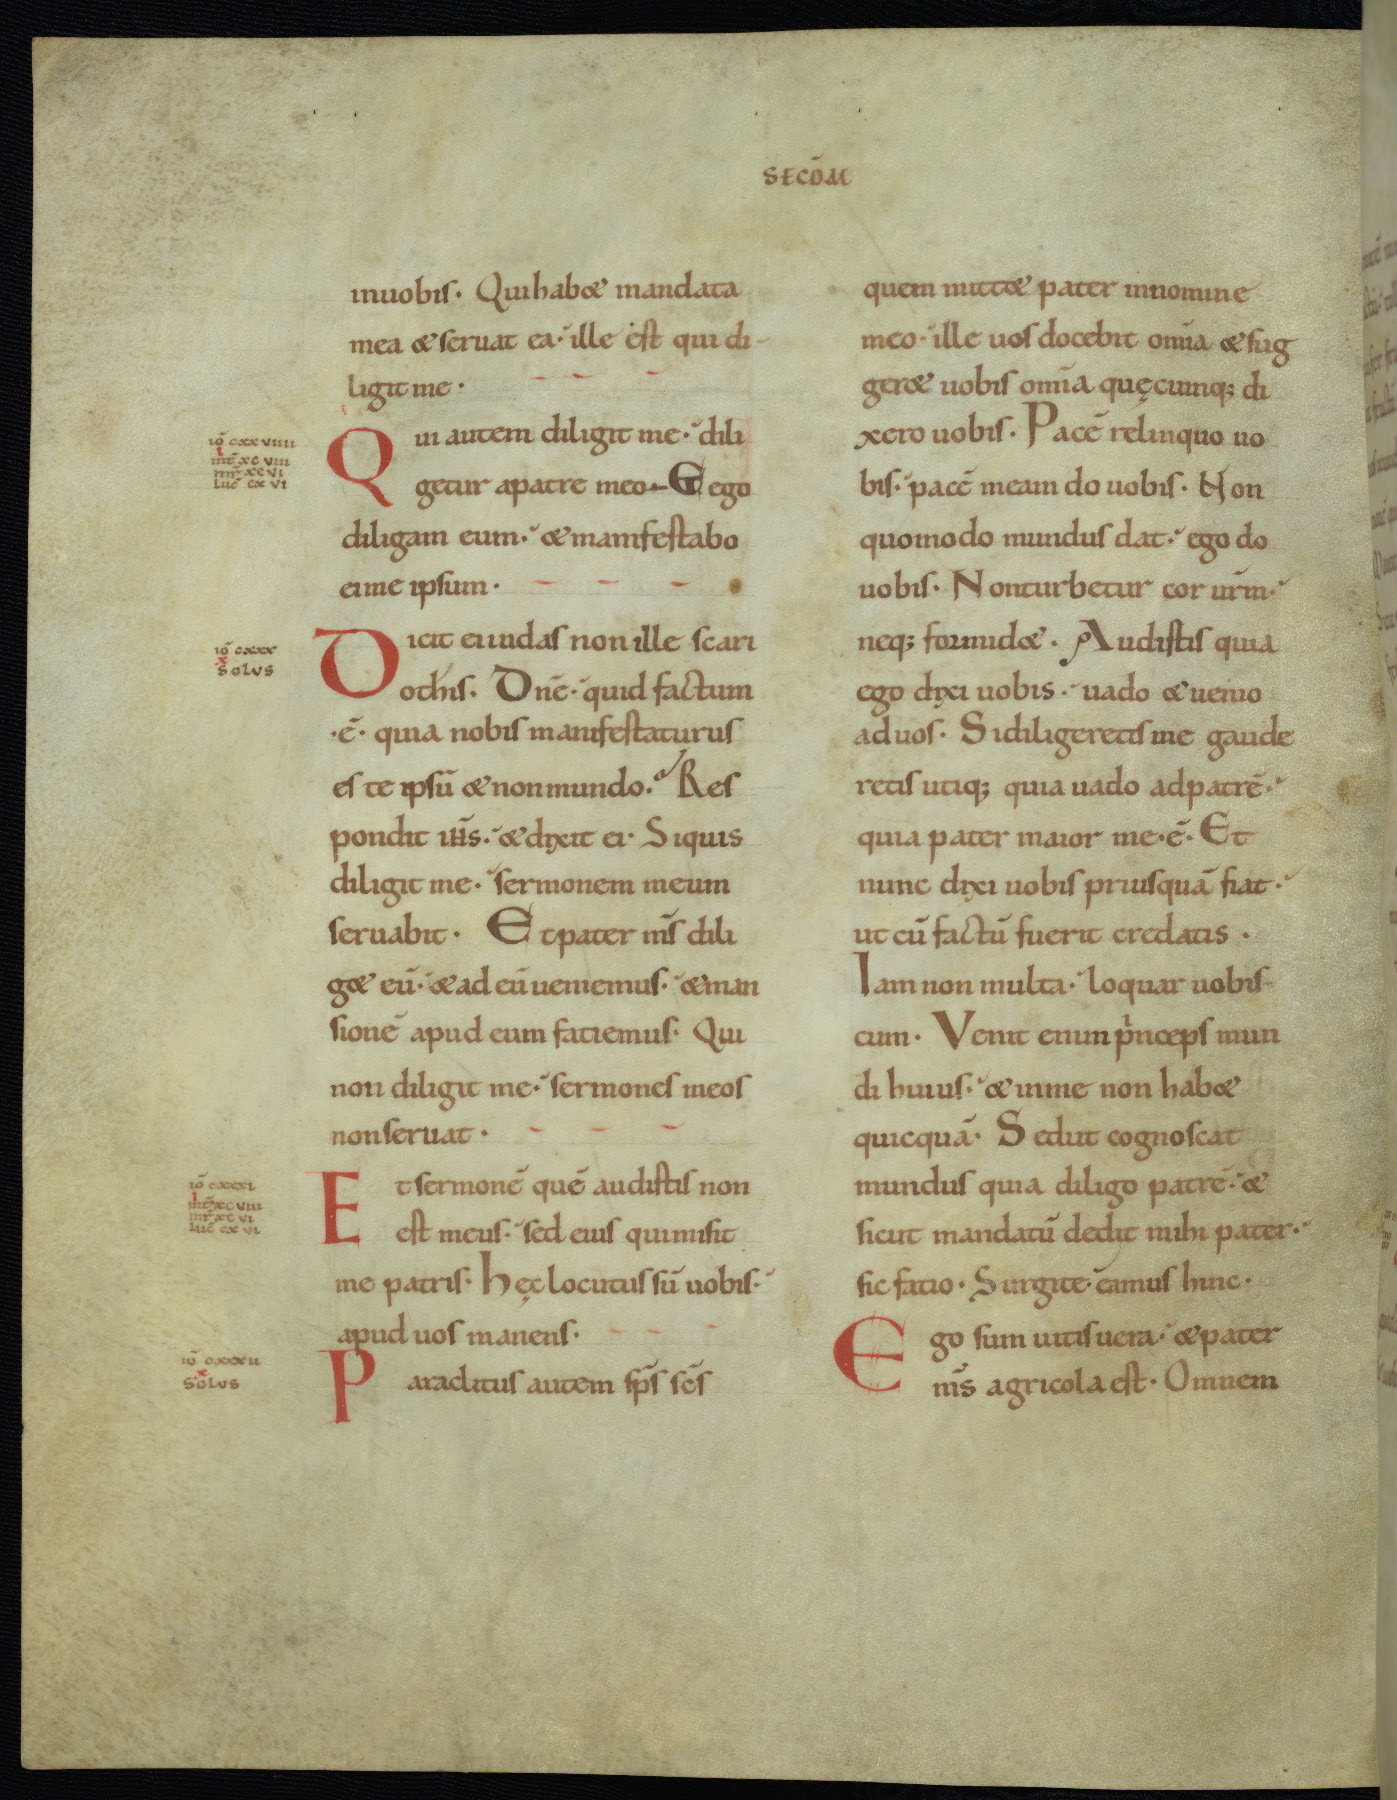 SECDM
inuobis. Qui habet mandata
mea & seruat ea. ille est qui di-
ligit me.
iō cxxviiii
i
mt̄ xc viii
mr̄ xc vi
luc̄ cx vi
Qui autem diligit me. dili
getur apatre meo. Et ego
diligam eum. & manifestabo
ei me ipsum.
iō cxxx
x
solus
Dicit ei iudas non ille scari
othis. Dnē. quid factum
.ē. quia nobis manifestaturus
es te ipsū & non mundo. Res
pondit iħs. & dixit ei. Siquis
diligit me. sermonem meum
seruabit. Et pater ms̄ dili
g& eū. & ad eū ueniemus. & man
sionē apud eum fatiemus. Qui
non diligit me. sermones meos
non seruat.
iō cxxxi
i
mt̄ xc viii
mr̄ xc vi
luc̄ cx vi
Et sermonē quē audistis non
est meus. sed eius qui misit
me patris. hęc locutus sū uobis.
apud uos manens.
iō cxxxii
x
solus
Paraclitus autem sps̄ scs̄
quem mitt& pater innomine
meo. ille uos docebit omīa & sug
ger& uobis omīa quęcumq; di
xero uobis. Pacē relinquo uo
bis. pacē meam do uobis. Non
quomodo mundus dat. ego do
uobis. Non turbetur cor ur̄m.
neq; formid&. Audistis quia
ego dixi uobis. uado & uenio
ad uos. Si diligeretis me gaude
retis utiq; quia uado ad patrē.
quia pater maior me.ē. Et
nunc dixi uobis priusquā fiat.
ut cū factū fuerit credatis.
Iam non multa. loquar uobis-
cum. Venit enim princeps mun
di huius. & in me non hab&
quicquā. Sed ut cognoscat
mundus quia diligo patrē. &
sicut mandatū dedit mihi pater.
sic fatio. Surgite. eamus hinc.
Ego sum uitis uera. & pater
ms̄ agricola est. Omnem